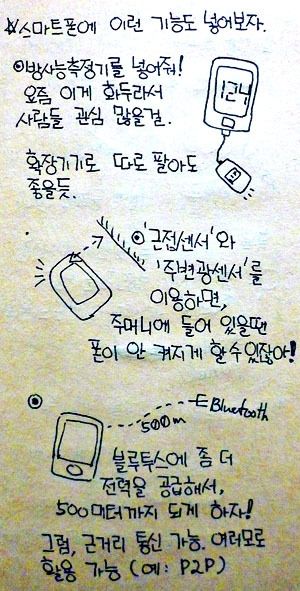 ☆스마트폰에 이런 기능도 넣어보자.
⊙방사능측정기를 넣어줘!
요즘 이게 화두라서
사람들 관심 많을걸.
124
확장기기로 따로 팔아도
좋을듯.
⊙'근접센서'와
'주변광센서'를
이용하면,
주머니에 들어 있을땐
폰이 안 켜지게 할 수 있잖아!
⊙
Bluetooth
500m
블루투스에 좀 더
전력을 공급해서,
500미터까지 되게 하자!
그럼, 근거리 통신 가능. 여러모로
활용 가능 (예: P2P)